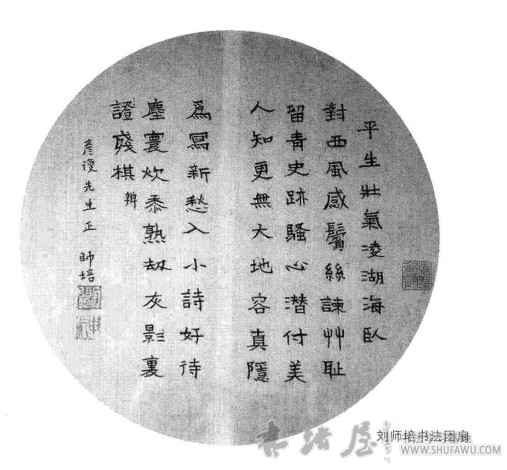 平生壯氣凌湖海臥
對西風感鬢絲諫艸耻
留青史跡騷心潛付美
人知更無大地容真隱
爲寫新愁入小詩好待
塵寰炊黍熟劫灰影裏
證殘棋 辨
彥復先生正 師培
刘师培书法团扇
书法屋
WWW.SHUFAWU.COM